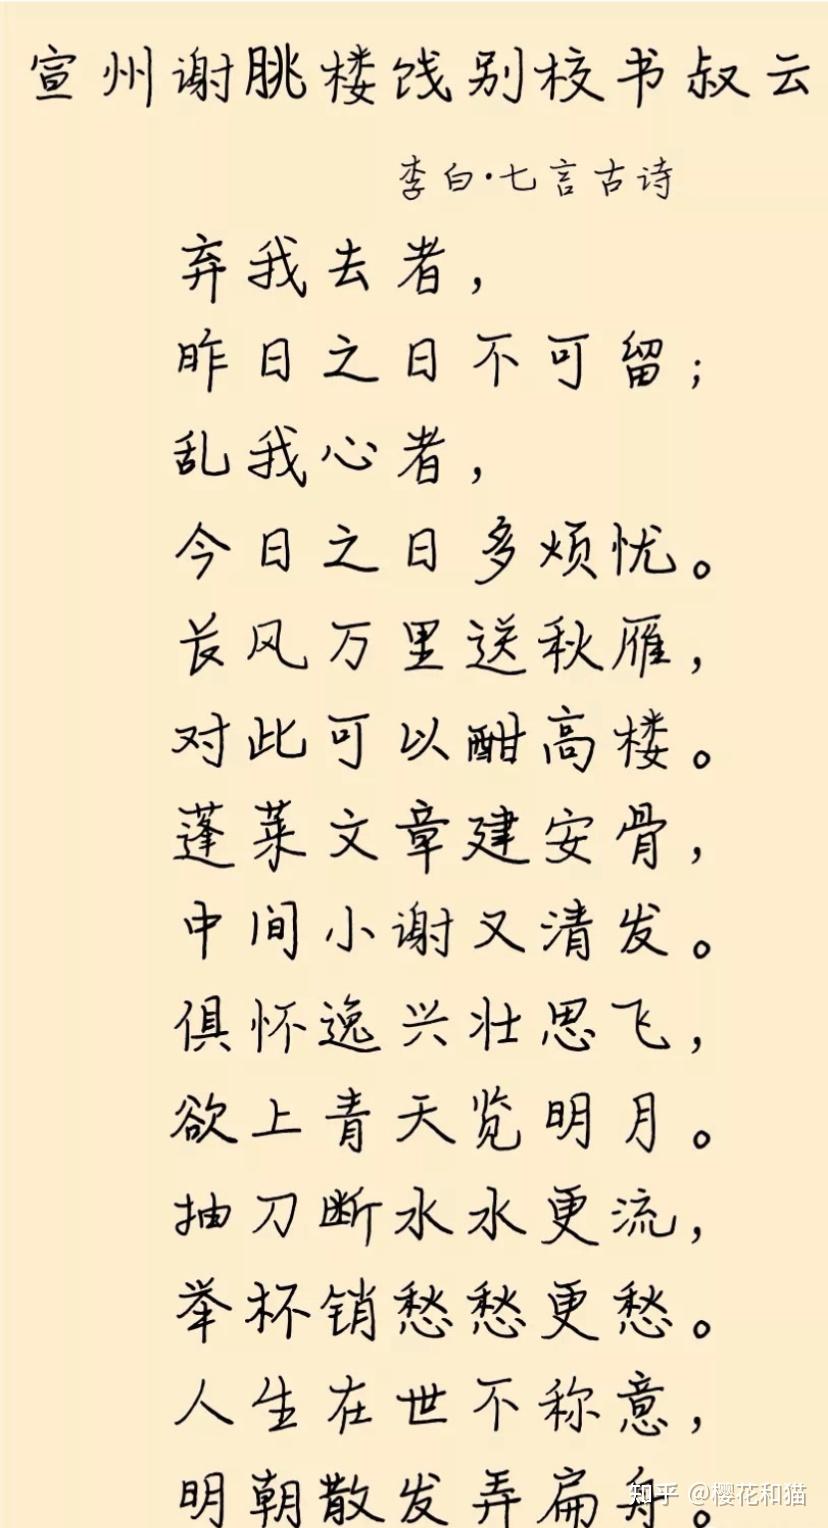 宣州谢朓楼饯别校书叔云
李白·七言古诗
弃我去者，
昨日之日不可留；
乱我心者，
今日之日多烦忧。
长风万里送秋雁，
对此可以酣高楼。
蓬莱文章建安骨，
中间小谢又清发。
俱怀逸兴壮思飞，
欲上青天览明月。
抽刀断水水更流，
举杯销愁愁更愁。
人生在世不称意，
明朝散发弄扁舟。
知乎 @樱花和猫